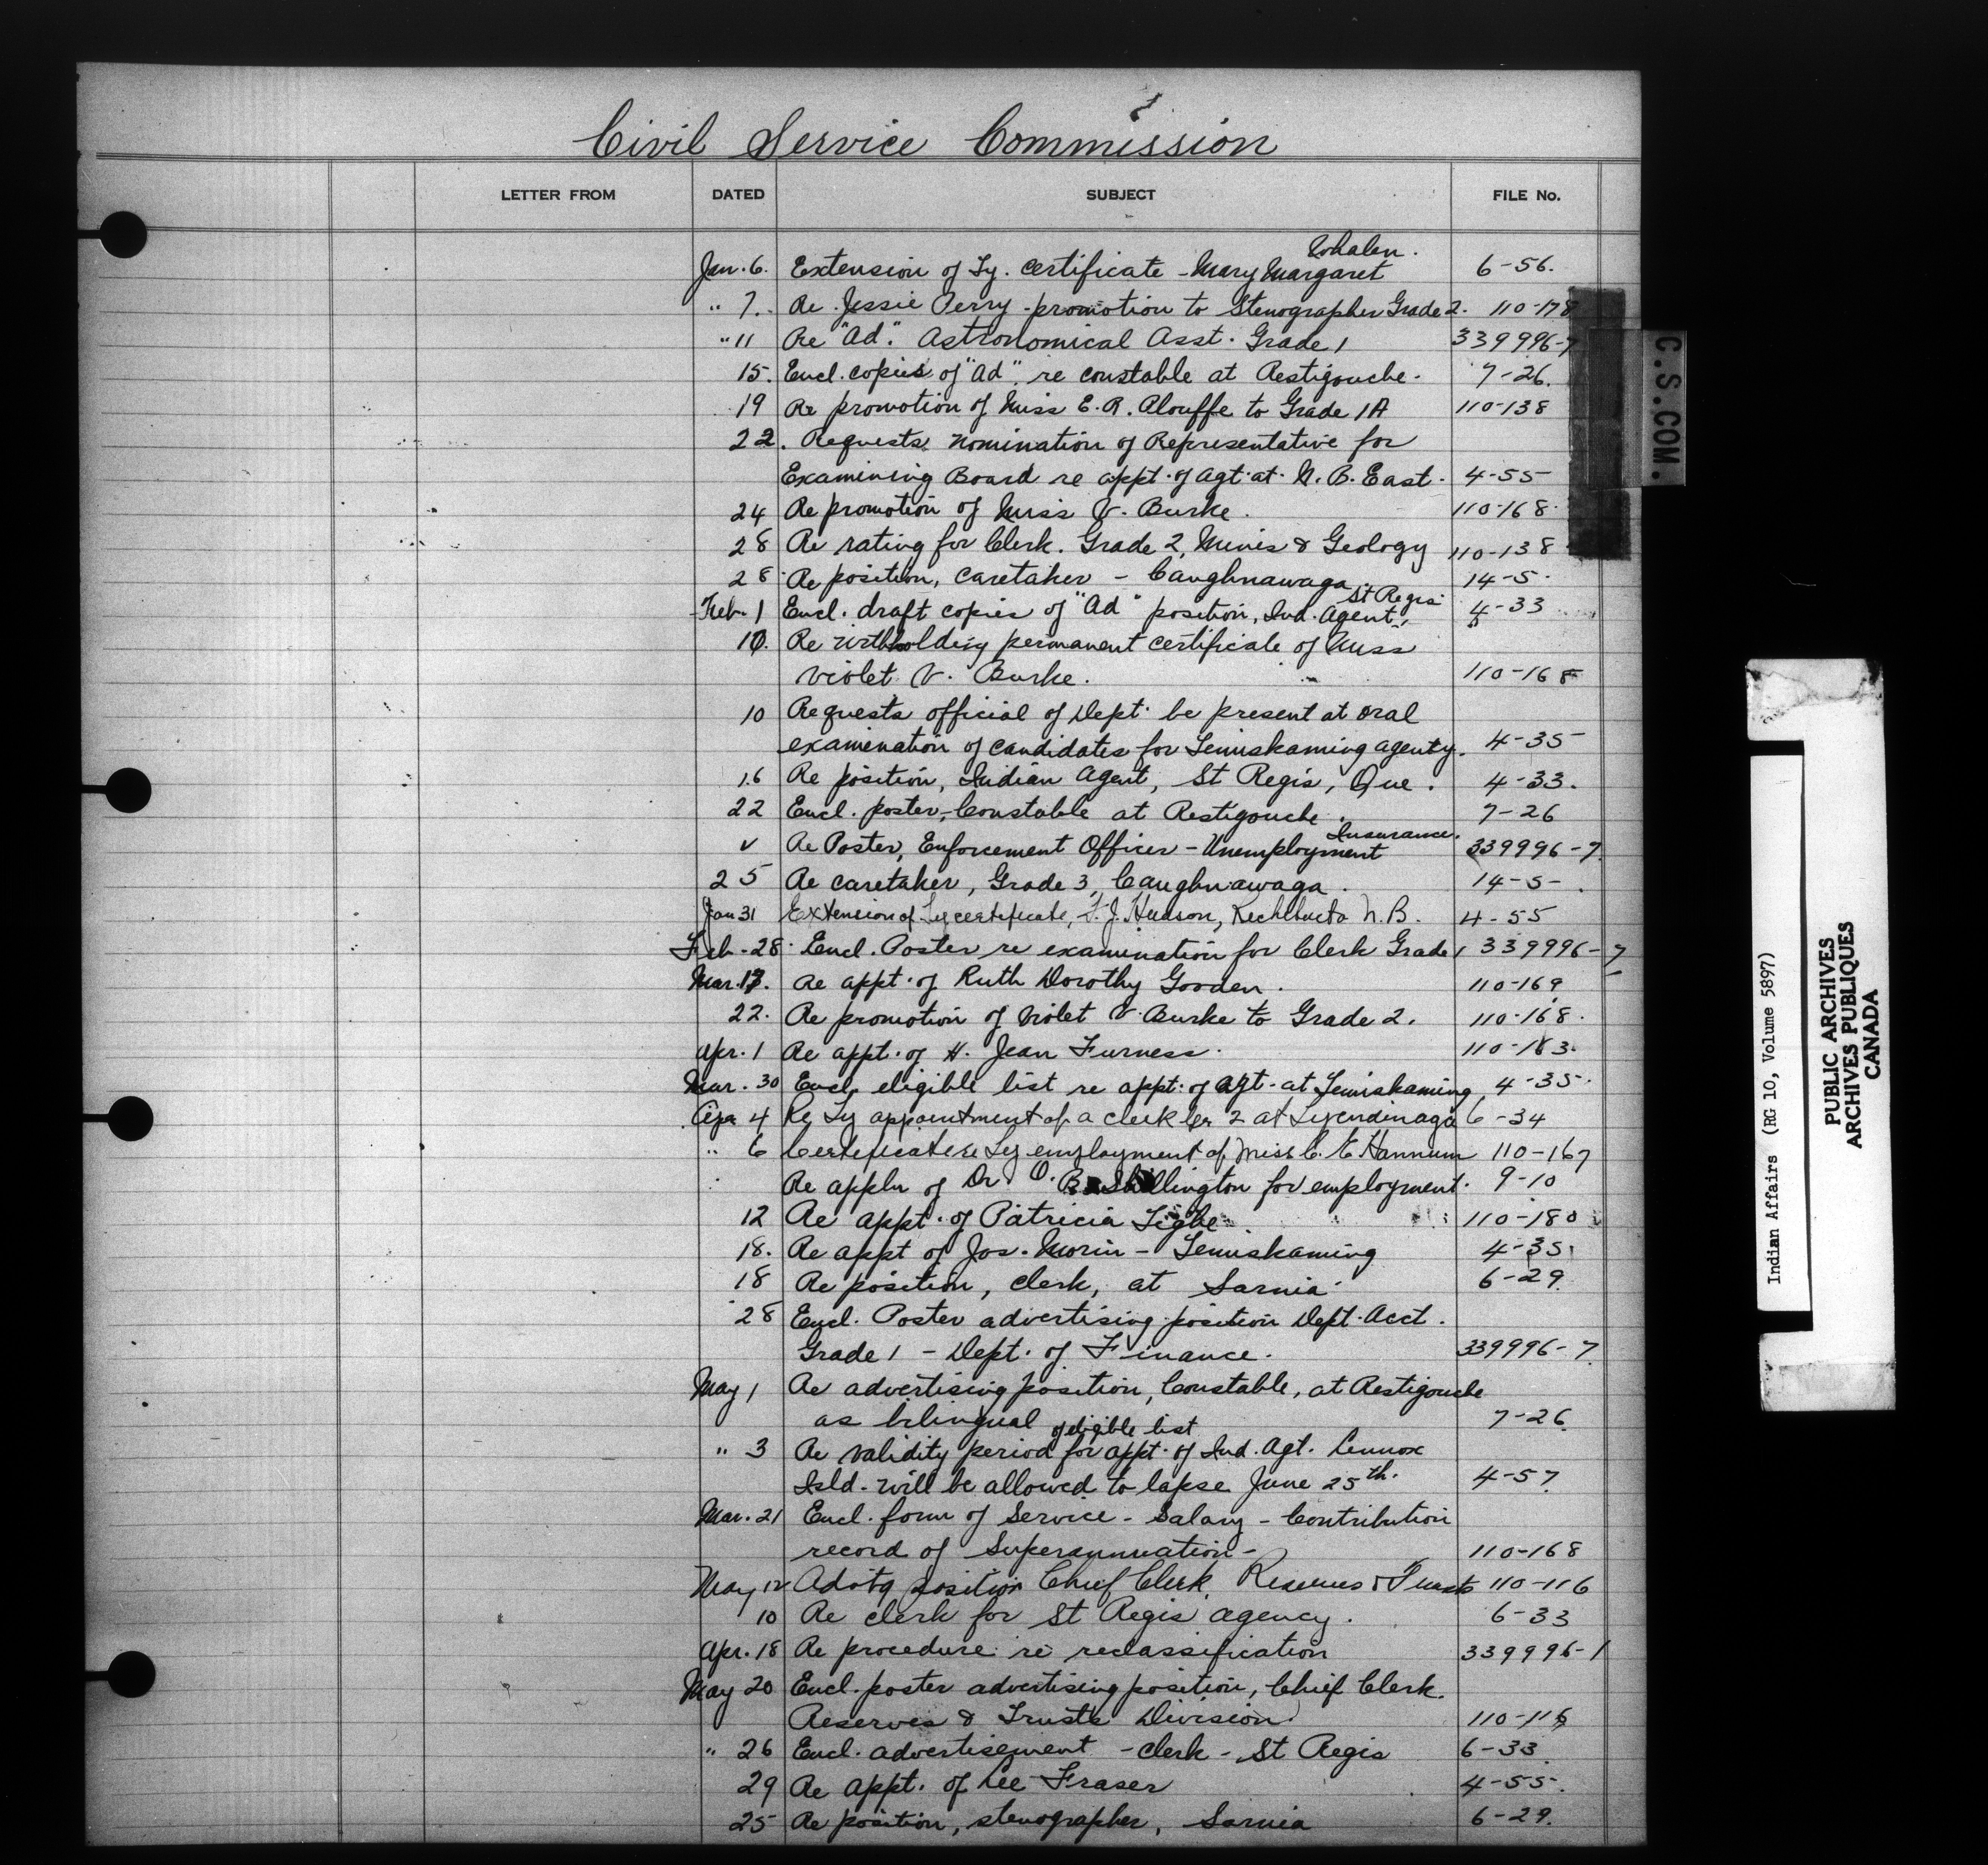 Civil Service Commission
LETTER FROM DATED SUBJECT FILE No.
Whalen.
Jan. 6. Extension of Ty. Certificate - Mary Margaret 6-56.
" 7. Re Jessie Perry - promotion to Stenographer Grade 2. 110-178
" 11 Re "Ad." Astronomical Asst. Grade 1 339996-7
15. Encl. copies of "Ad". re constable at Restigouche. 7-26.
19 Re promotion of Miss E. R. Plouffe to Grade 1A 110-138
22. Requests nomination of Representative for
Examining Board re appt. of Agt. at N. B. East. 4-55
24 Re promotion of Miss V. Burke. 110-168.
28 Re rating for Clerk. Grade 2, Mines & Geology 110-138
28 Re position, Caretaker - Caughnawaga. 14-5.
St Regis
Feb. 1 Encl. draft copies of "Ad" position, Ind. Agent, 4-33
10. Re withholding permanent certificate of Miss
Violet V. Burke. 110-168
10 Requests official of Dept. be present at oral
examination of candidates for Temiskaming agency. 4-35
16 Re position, Indian Agent, St Regis, Que. 4-33.
22 Encl. poster, Constable at Restigouche. 7-26
Insurance.
✓ Re Poster, Enforcement Officer - Unemployment 339996-7.
25 Re caretaker, Grade 3, Caughnawaga. 14-5-
Jan 31 Extension of Ty certificate, T. J. Hudson, Rechibucto N.B. 4-55
Feb. 28. Encl. Poster re examination for Clerk Grade 1 339996-7
Mar. 13. Re appt. of Ruth Dorothy Gooden. 110-169
22. Re promotion of Violet V. Burke to Grade 2. 110-168.
Apr. 1 Re appt. of H. Jean Furness. 110-183.
Mar. 30 Encl. eligible list re appt. of Agt. at Temiskaming 4-35.
Apr 4 Re Ty appointment of a clerk Gr 2 at Tyendinaga 6-34
" 6 Certificate re Ty employment of Miss C. E. Hannum 110-167
Re appln of Dr. O. B. Shillington for employment. 9-10
12 Re appt. of Patricia Tighe. 110-180
18. Re appt of Jos. Morin - Temiskaming 4-35
18 Re position, clerk, at Sarnia. 6-29.
28 Encl. Poster advertising position Dept. Acct.
Grade 1 - Dept. of Finance. 339996-7.
May 1 Re advertising position, Constable, at Restigouche
as bilingual 7-26
of eligible list
" 3 Re validity period for appt. of Ind. Agt. Lennox
Isld. will be allowed to lapse June 25th. 4-57
Mar. 21 Encl. form of Service - Salary - Contribution
record of Superannuation - 110-168
May 12 Advtg position Chief Clerk, Reserves & Trusts 110-116
10 Re clerk for St Regis agency. 6-33
Apr. 18 Re procedure re reclassification 339996-1
May 20 Encl. poster advertising position, Chief Clerk.
Reserves & Trusts Division. 110-116
" 26 Encl. advertisement - Clerk - St Regis 6-33.
29 Re appt. of Lee Fraser 4-55.
25 Re position, stenographer, Sarnia 6-29.
C.S.COM.
Indian Affairs (RG 10, Volume 5897)
PUBLIC ARCHIVES
ARCHIVES PUBLIQUES
CANADA